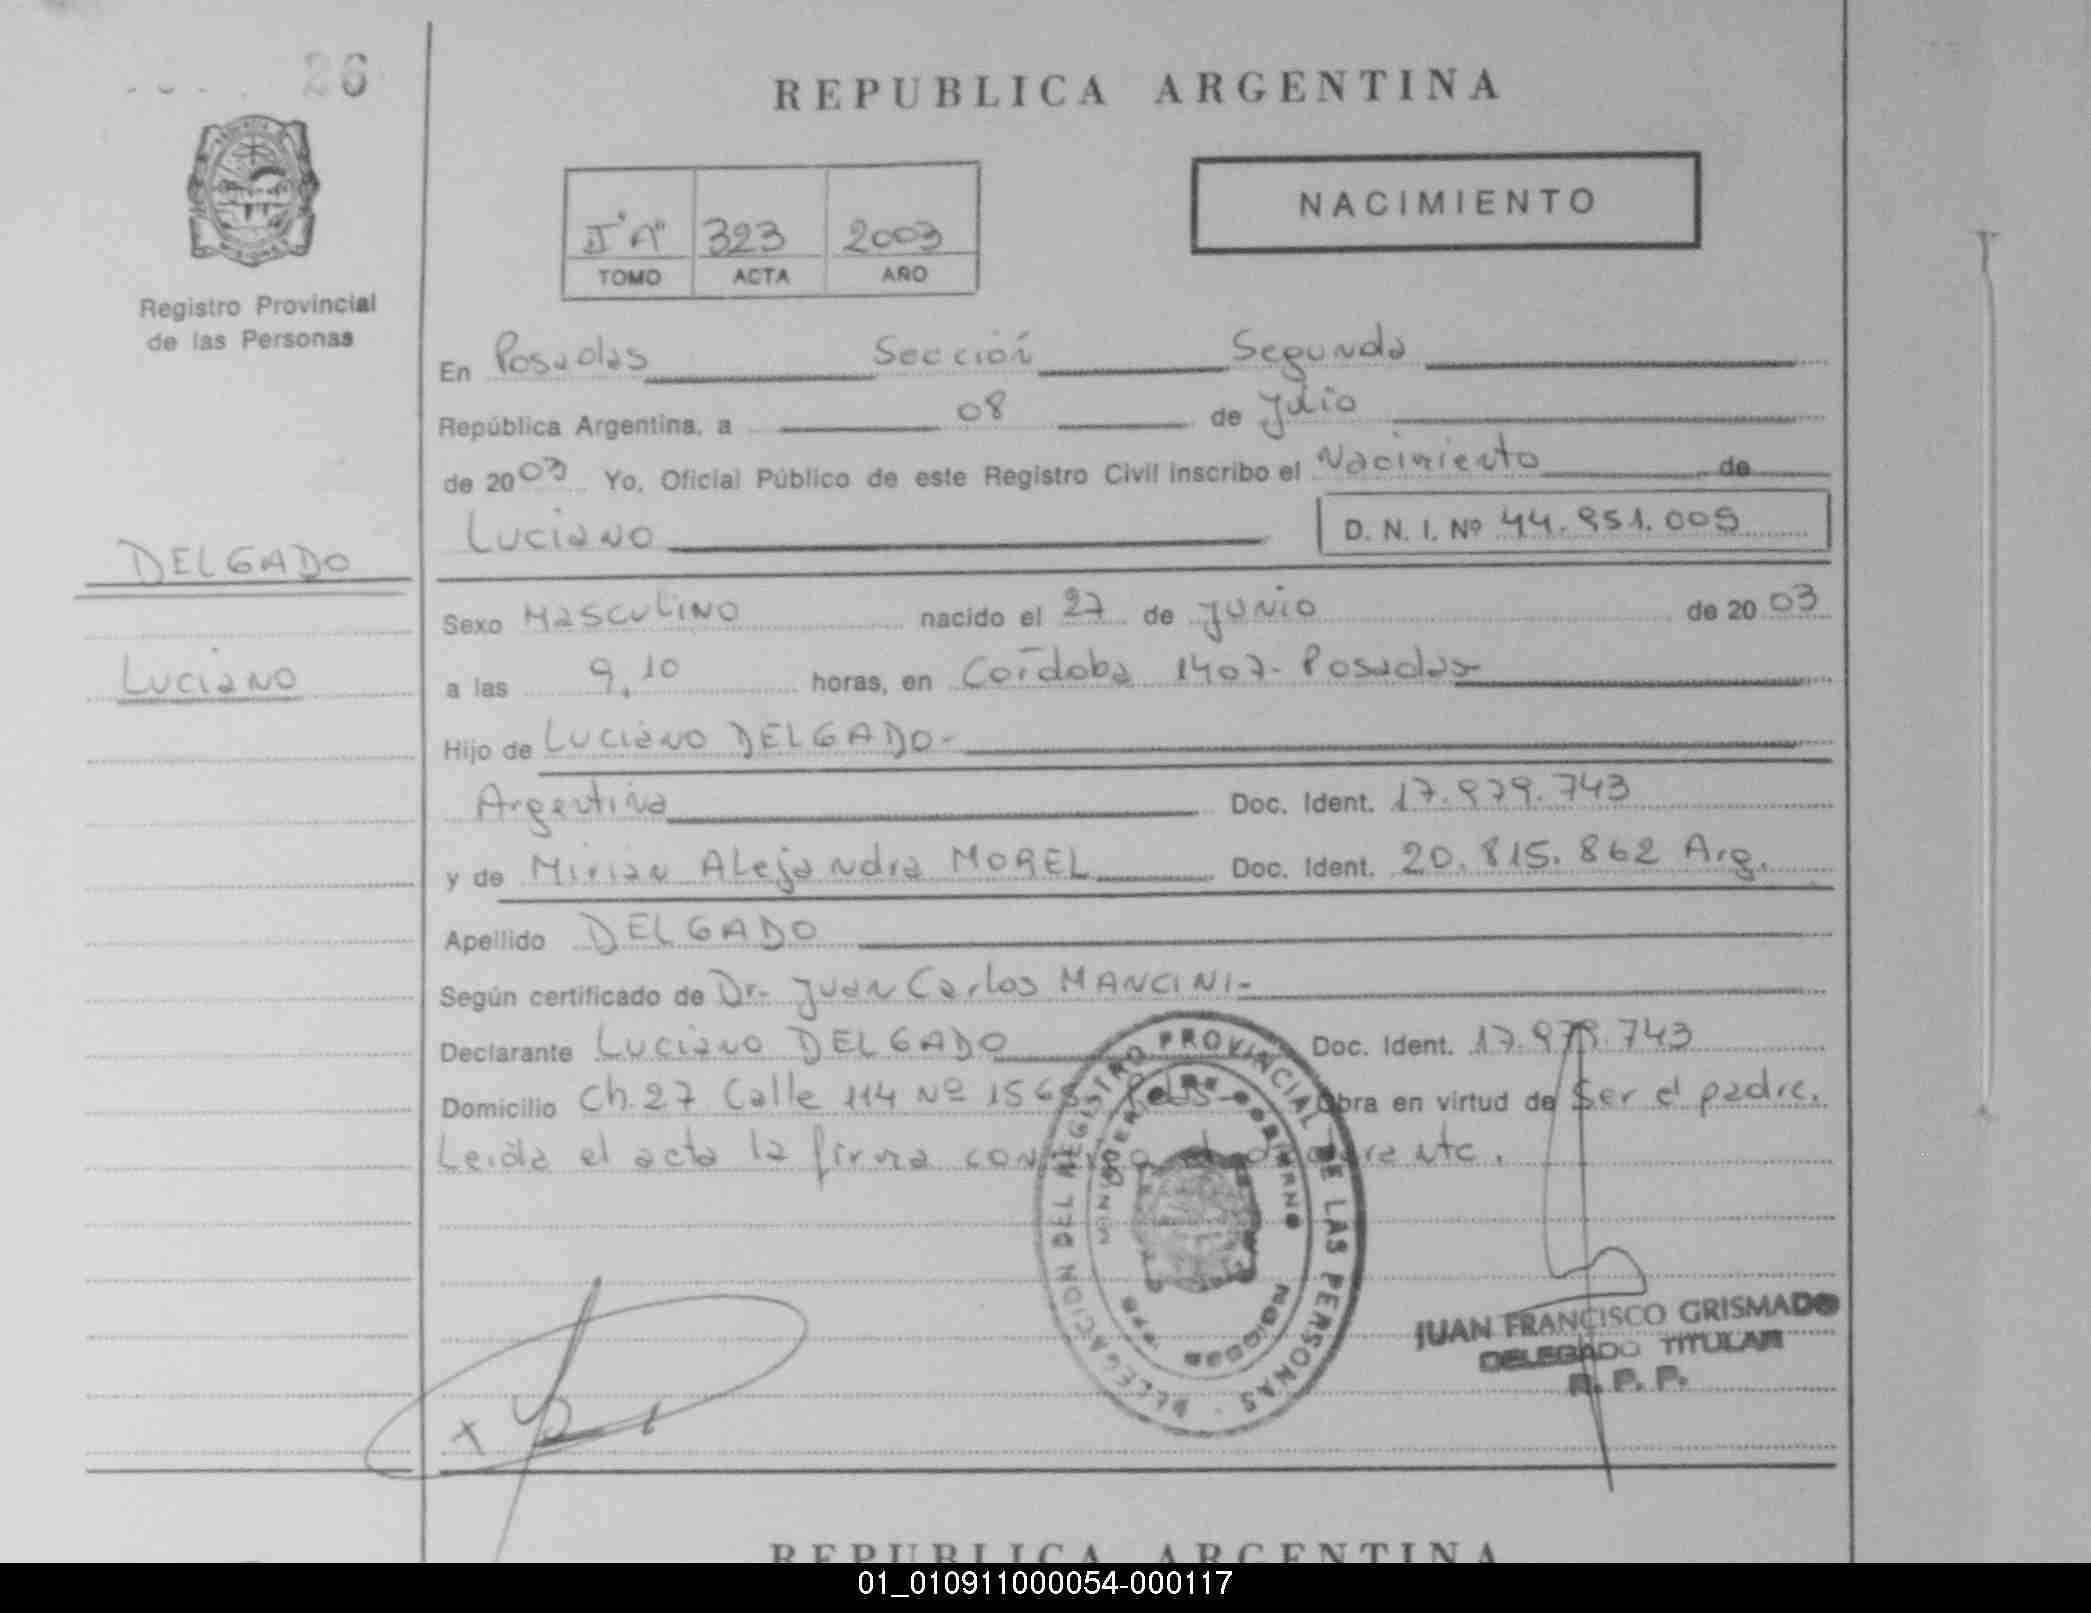 26
REPUBLICA ARGENTINA
NACIMIENTO
II "A" 323 2003
TOMO ACTA AÑO
Registro Provincial
de las Personas
En Posadas Sección Segunda
República Argentina, a 08 de Julio
de 2003 Yo, Oficial Público de este Registro Civil inscribo el Nacimiento de
Luciano D. N. I. Nº 44.951.009
DELGADO
Luciano
Sexo Masculino nacido el 27 de junio de 2003
a las 9,10 horas, en Córdoba 1407- Posadas
Hijo de Luciano DELGADO-
Argentina Doc. Ident. 17.979.743
y de Mirian Alejandra MOREL Doc. Ident. 20.815.862 Arg.
Apellido DELGADO
Según certificado de Dr. Juan Carlos MANCINI-
Declarante Luciano DELGADO Doc. Ident. 17.979.743
Domicilio Ch. 27 Calle 114 Nº 1568 Pdas- Obra en virtud de Ser el padre.
Leida el acta la firma
DELEGACION DEL REGISTRO PROVINCIAL DE LAS PERSONAS
JUAN FRANCISCO GRISMADO
DELEGADO TITULAR
R. P. P.
REPUBLICA ARGENTINA
01_010911000054-000117